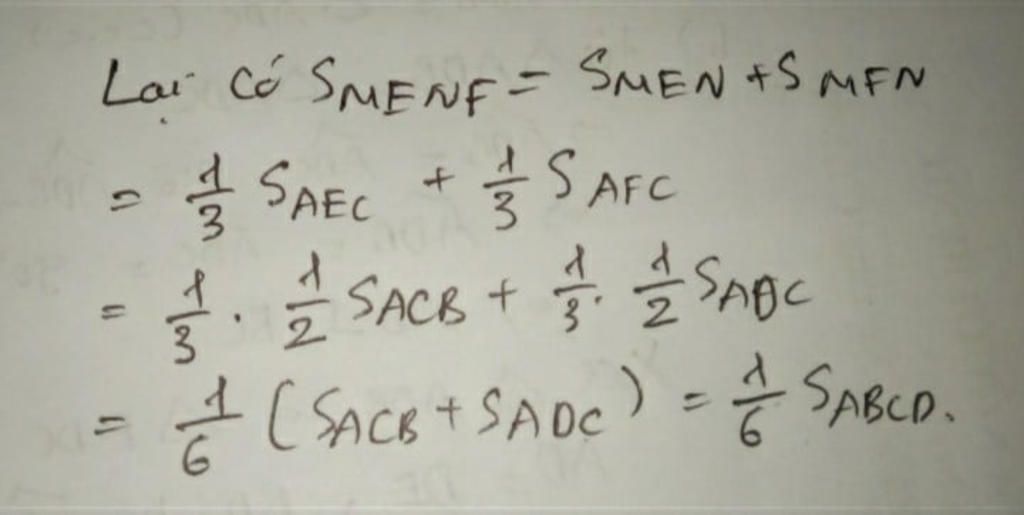 Lại có SMENF = SMEN + SMFN
= 1/3 SAEC + 1/3 SAFC
= 1/3 . 1/2 SACB + 1/3 . 1/2 SADC
= 1/6 (SACB + SADC) = 1/6 SABCD.